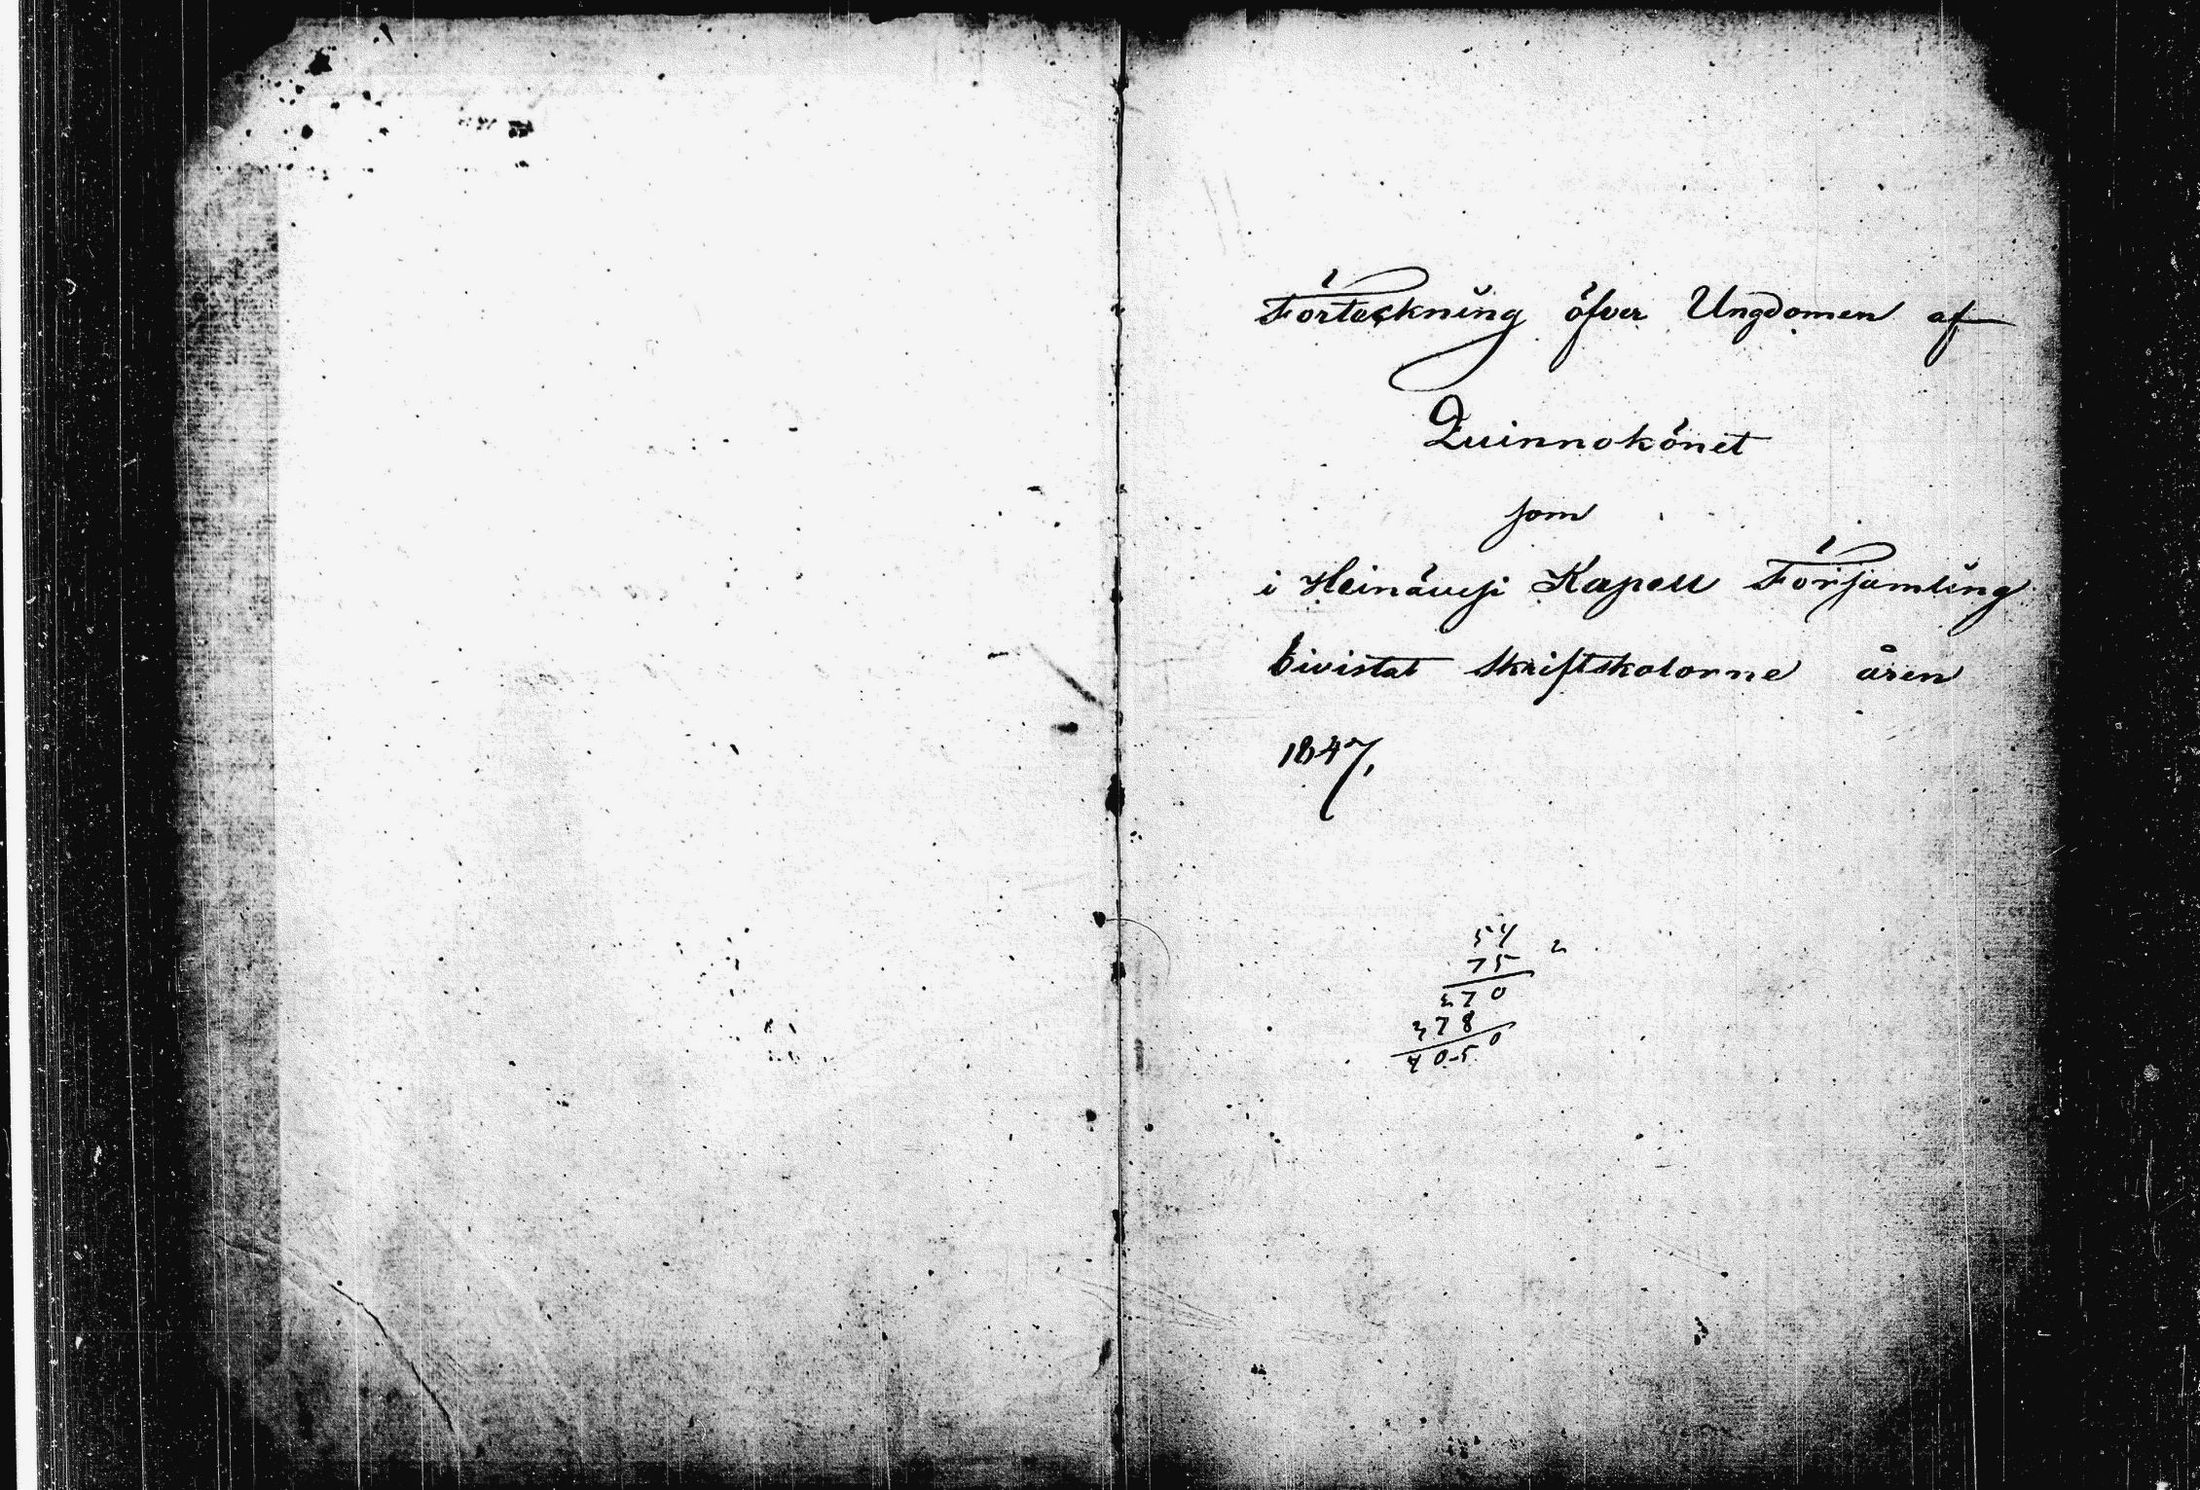 Förteckning öfver Ungdomen af
Quinnokönet
som
i Heinävesi Kapell Församling
bivistat Skriftskolorne åren
1847,
54 2
75
270
378
4050